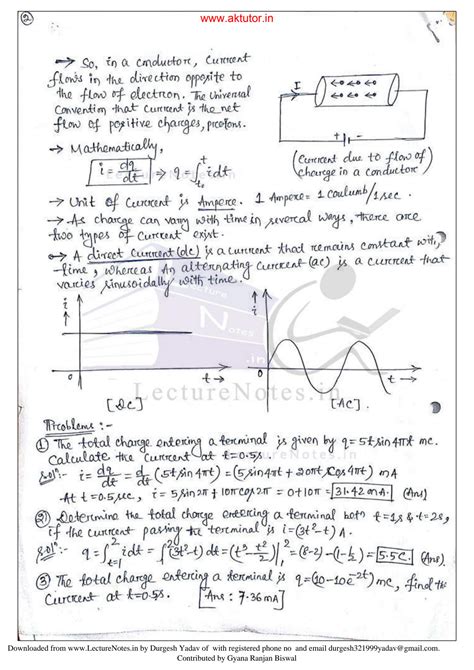 www.aktutor.in
2
→ So, in a conductor, current
flows in the direction opposite to
the flow of electron. The universal
convention that current is the net
flow of positive charges, protons.
I
+ -
(Current due to flow of
charge in a conductor)
→ Mathematically,
i = dq/dt ⇒ q = ∫_{t₀}^{t} i dt
→ Unit of current is Ampere. 1 Ampere = 1 Coulumb/1 sec.
→ As charge can vary with time in several ways, there are
two types of current exist.
→ A direct current (dc) is a current that remains constant with
time, whereas an alternating current (ac) is a current that
varies sinusoidally with time.
i
0
t →
[DC]
i
0
t →
[AC].
Lecture Notes
.in
LectureNotes.in
Problems :-
① The total charge entering a terminal is given by q = 5t sin 4πt mc.
Calculate the current at t = 0.5s
Solⁿ:- i = dq/dt = d/dt (5t sin 4πt) = (5 sin 4πt + 20πt cos 4πt) mA
At t = 0.5 sec, i = 5 sin 2π + 10π cos 2π = 0 + 10π = 31.42 mA. (Ans)
② Determine the total charge entering a terminal betn t = 1s & t = 2s,
if the current passing the terminal is i = (3t² - t) A.
Solⁿ:- q = ∫_{t=1}^{2} i dt = ∫_{1}^{2} (3t² - t) dt = (t³ - t²/2)|₁² = (8-2) - (1-1/2) = 5.5C. (Ans).
③ The total charge entering a terminal is q = (10 - 10e^{-2t}) mc, find the
current at t = 0.5s. [Ans: 7.36 mA]
Downloaded from www.LectureNotes.in by Durgesh Yadav of with registered phone no and email durgesh321999yadav@gmail.com.
Contributed by Gyana Ranjan Biswal